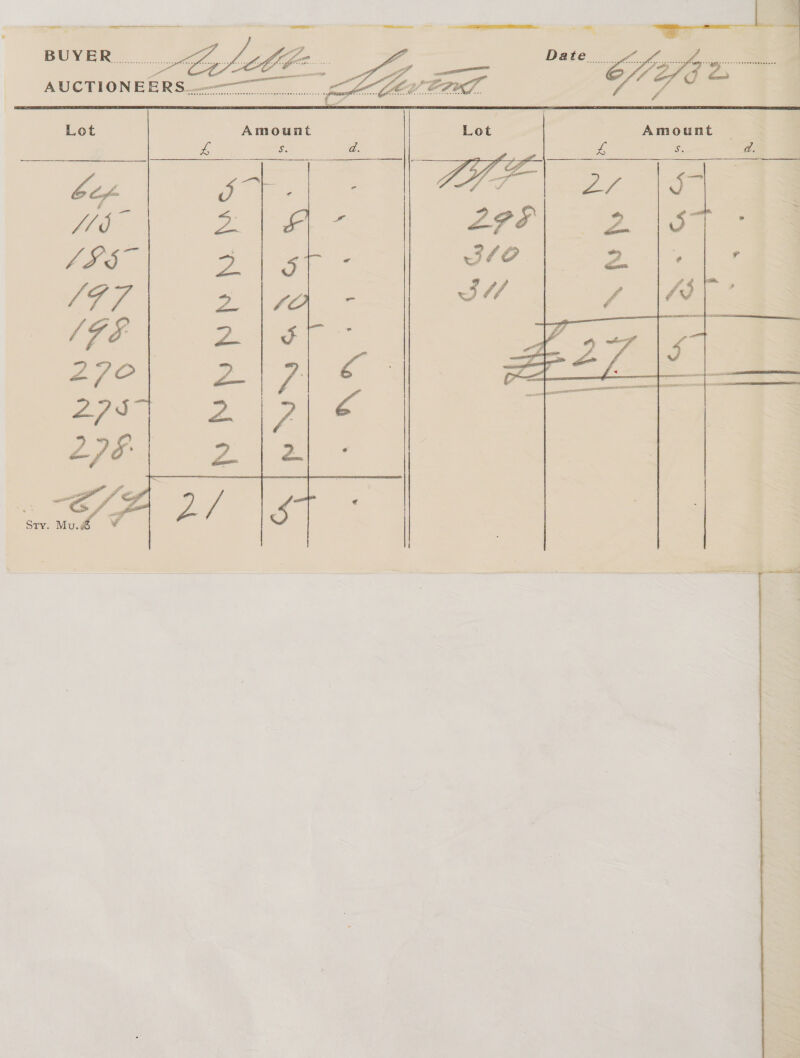 BUYER Date 6/12/32
AUCTIONEERS
Lot Amount Lot Amount
£ s. d. £ s. d.
64 5 - - B/F 21 5
115 2 8 - 298 2 5 -
185 2 5 - 310 2 - -
197 2 10 - 311 1 15 -
198 2 5 - £27 5
270 2 7 6
275 2 7 6
278 2 2 -
C/F 21 5 -
Sty. Mu. 8